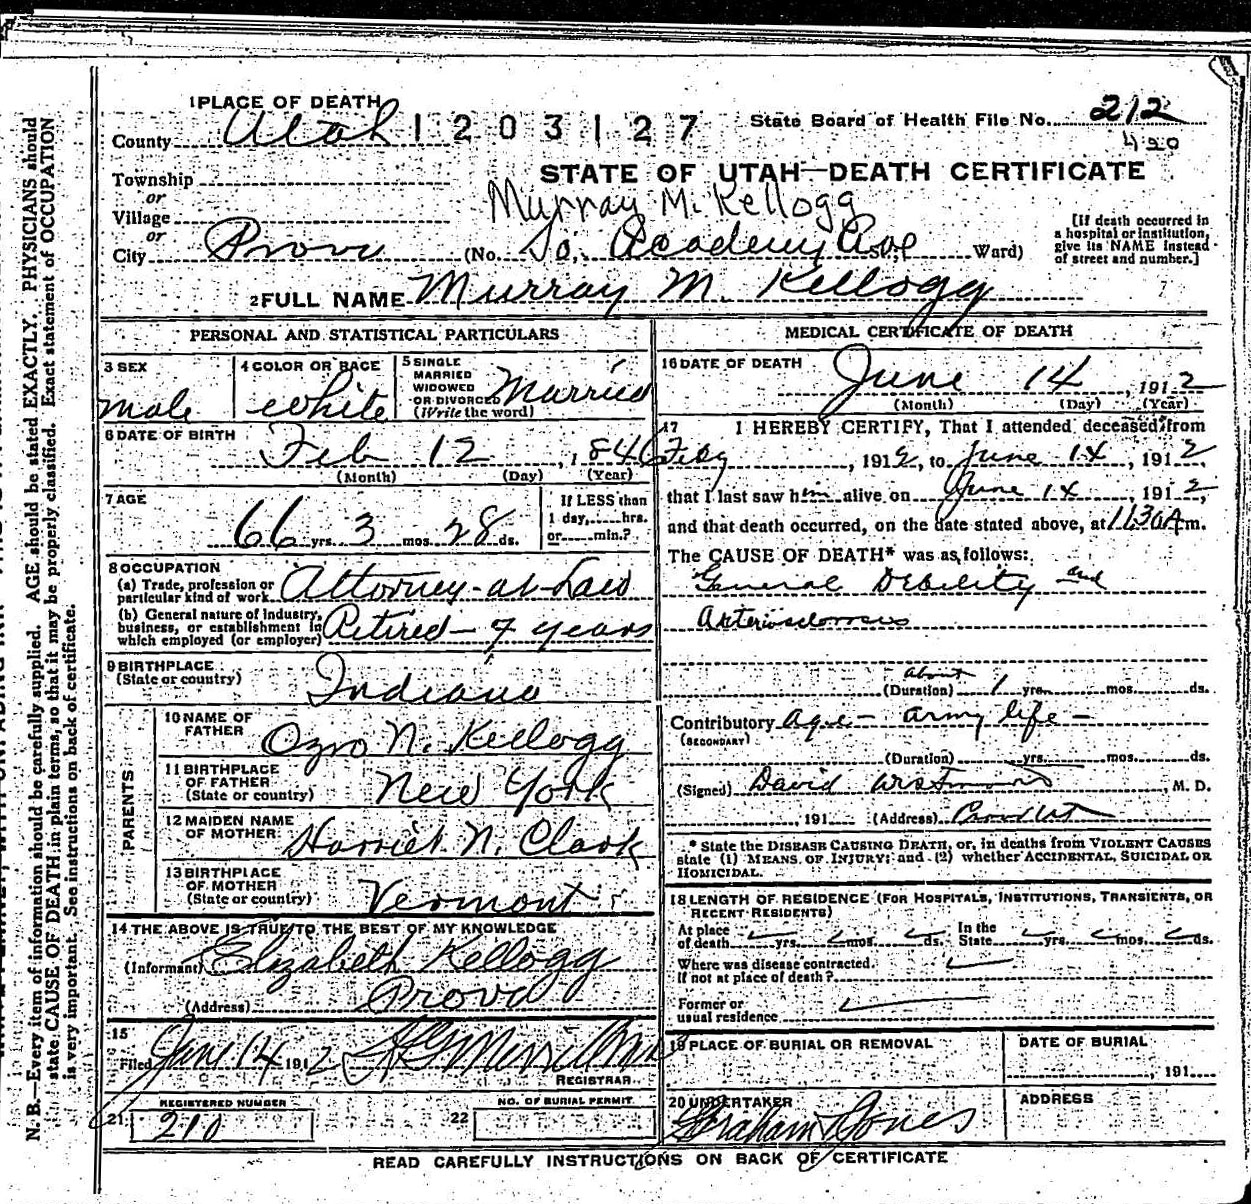 1 PLACE OF DEATH
County Utah 1203127 State Board of Health File No. 212
450
Township
or
Village
or
City Provo
STATE OF UTAH—DEATH CERTIFICATE
Murray M. Kellogg
(No. So. Academy Ave St., Ward)
[If death occurred in
a hospital or institution,
give its NAME instead
of street and number.]
2 FULL NAME Murray M. Kellogg
PERSONAL AND STATISTICAL PARTICULARS
3 SEX
male
4 COLOR OR RACE
White
5 SINGLE
MARRIED
WIDOWED
OR DIVORCED
(Write the word)
Married
6 DATE OF BIRTH
Feb 12, 1846
(Month) (Day) (Year)
7 AGE
66 yrs. 3 mos. 28 ds.
If LESS than
1 day, hrs.
or min.?
8 OCCUPATION
(a) Trade, profession or
particular kind of work Attorney-at-Law
(b) General nature of industry,
business, or establishment in
which employed (or employer) Retired - 7 years
9 BIRTHPLACE
(State or country)
Indiana
PARENTS
10 NAME OF
FATHER
Ozro N. Kellogg
11 BIRTHPLACE
OF FATHER
(State or country)
New York
12 MAIDEN NAME
OF MOTHER
Harriet N. Clark
13 BIRTHPLACE
OF MOTHER
(State or country)
Vermont
14 THE ABOVE IS TRUE TO THE BEST OF MY KNOWLEDGE
(Informant) Elizabeth Kellogg
(Address) Provo
15
Filed June 14 1912
REGISTRAR.
REGISTERED NUMBER
21 210
22 NO. OF BURIAL PERMIT
MEDICAL CERTIFICATE OF DEATH
16 DATE OF DEATH
June 14, 1912
(Month) (Day) (Year)
17 I HEREBY CERTIFY, That I attended deceased from
, 1912, to June 14, 1912,
that I last saw him alive on June 14, 1912,
and that death occurred, on the date stated above, at 1130 A m.
The CAUSE OF DEATH* was as follows:
General Debility and
Arteriosclerosis
about
(Duration) 1 yrs. mos. ds.
Contributory age - army life -
(SECONDARY)
(Duration) yrs. mos. ds.
(Signed) David , M. D.
, 191 (Address) Provo Ut
* State the DISEASE CAUSING DEATH, or, in deaths from VIOLENT CAUSES
state (1) MEANS OF INJURY; and (2) whether ACCIDENTAL, SUICIDAL OR
HOMICIDAL.
18 LENGTH OF RESIDENCE (FOR HOSPITALS, INSTITUTIONS, TRANSIENTS, OR
RECENT RESIDENTS)
At place
of death yrs. mos. ds. In the
State yrs. mos. ds.
Where was disease contracted.
If not at place of death?
Former or
usual residence
19 PLACE OF BURIAL OR REMOVAL
DATE OF BURIAL
, 191
20 UNDERTAKER
Graham Jones
ADDRESS
READ CAREFULLY INSTRUCTIONS ON BACK OF CERTIFICATE
N. B. Every item of information should be carefully supplied. AGE should be stated EXACTLY. PHYSICIANS should
state CAUSE OF DEATH in plain terms, so that it may be properly classified. Exact statement of OCCUPATION
is very important. See instructions on back of certificate.